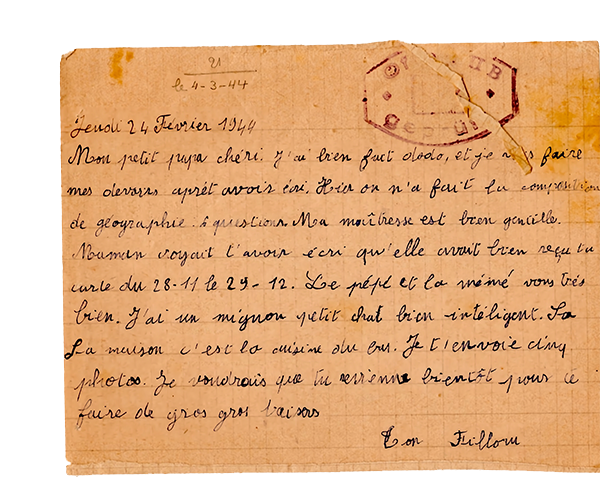 21
le 4-3-44
Geprüf
Jeudi 24 Février 1944
Mon petit papa chéri. J'ai bien fact dodo, et je vais faire
mes devoirs aprét avoir écri. Hier on n'a fait la composition
de géographie. 5 questions. Ma maîtresse est bien gentille.
Maman royait t'avoir écri qu'elle avait bien reçu ta
carte du 28-11 le 29-12. Le pépé et la mémé vons trés
bien. J'ai un mignon petit chat bien intéligent. Sa
La maison c'est la cuisine du bas. Je t'envoie cinq
photos. Je voudrais que tu revienne bientôt pour te
faire de gros gros baisers
Ton Fillou